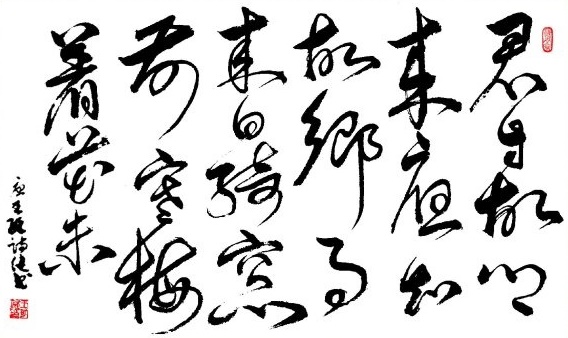 君自故鄉
來應知
故鄉事
來日綺窗
前寒梅
着花未
王維詩